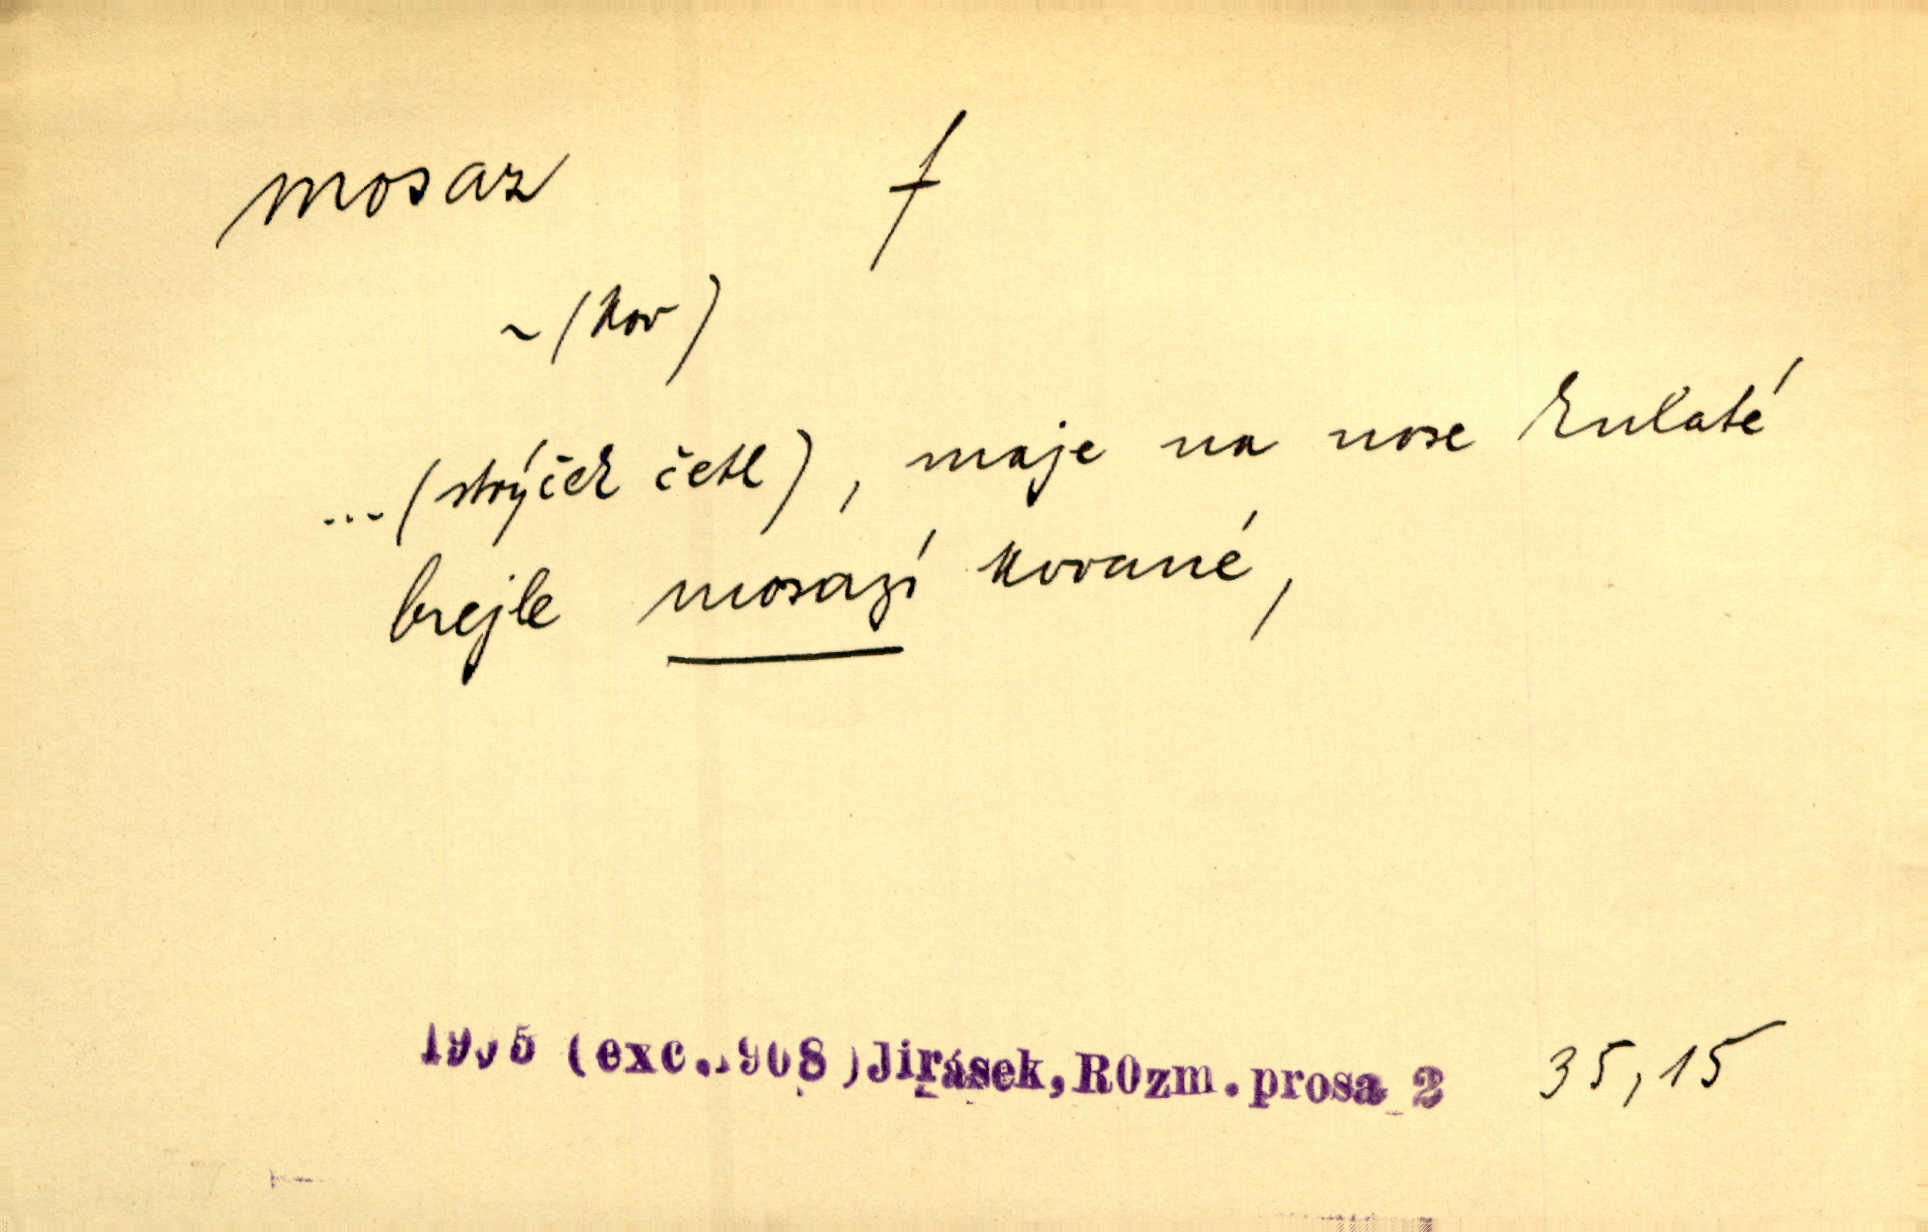 mosaz f
~ (kov)
... (strýček četl), maje na nose kulaté
brejle mosazí kované,
(exc. 908) Jirásek, ROzm. prosa 2 35,15